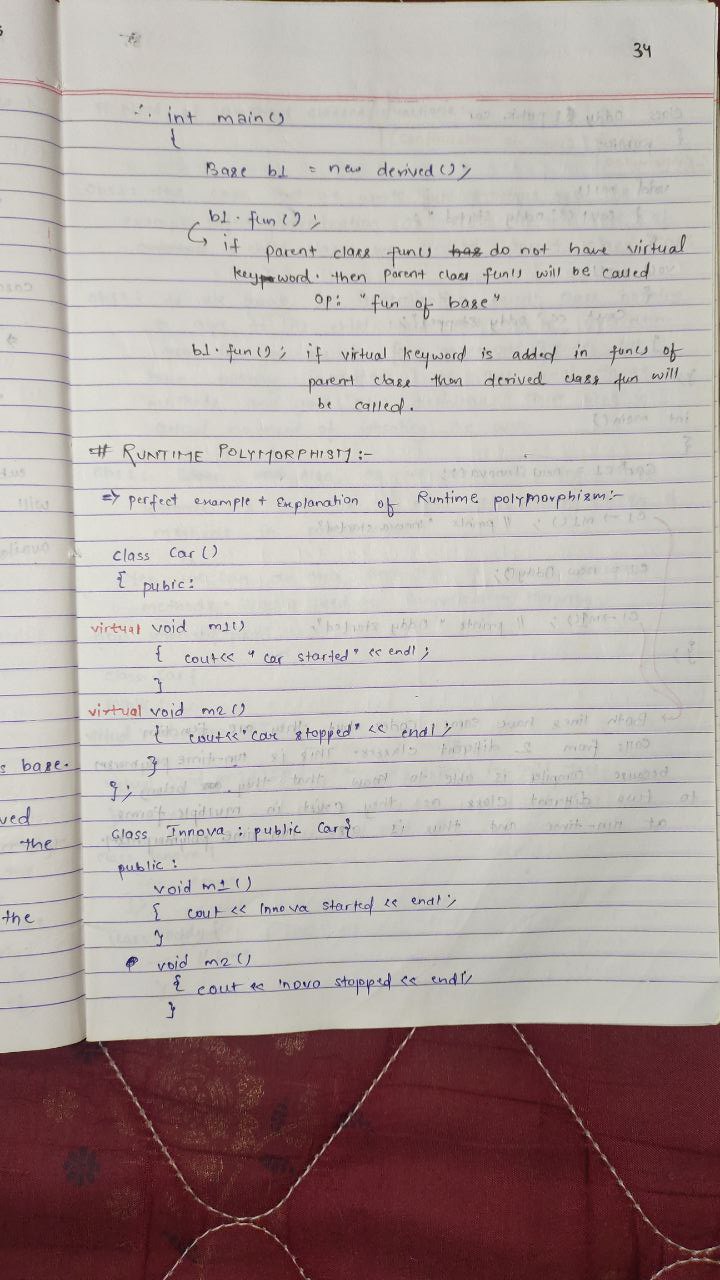 34
∴ int main()
{
Base b1 = new derived();
b1. fun();
↳ if parent class func() has do not have virtual
keyword. then parent class func() will be called
op: "fun of base"
b1. fun(); if virtual keyword is added in func() of
parent class then derived class fun will
be called.
# RUNTIME POLYMORPHISM :-
⇒ perfect example + Explanation of Runtime polymorphism:-
class Car()
{ pubic:
virtual void m1()
{ cout<< " car started" << endl ;
}
virtual void m2()
{ cout<<"car stopped" << endl ;
}
};
Class Innova : public Car{
public :
void m1()
{ cout << Innova started << endl ;
}
void m2()
{ cout << nova stopped << endl;
}
s base.
ved
the
the